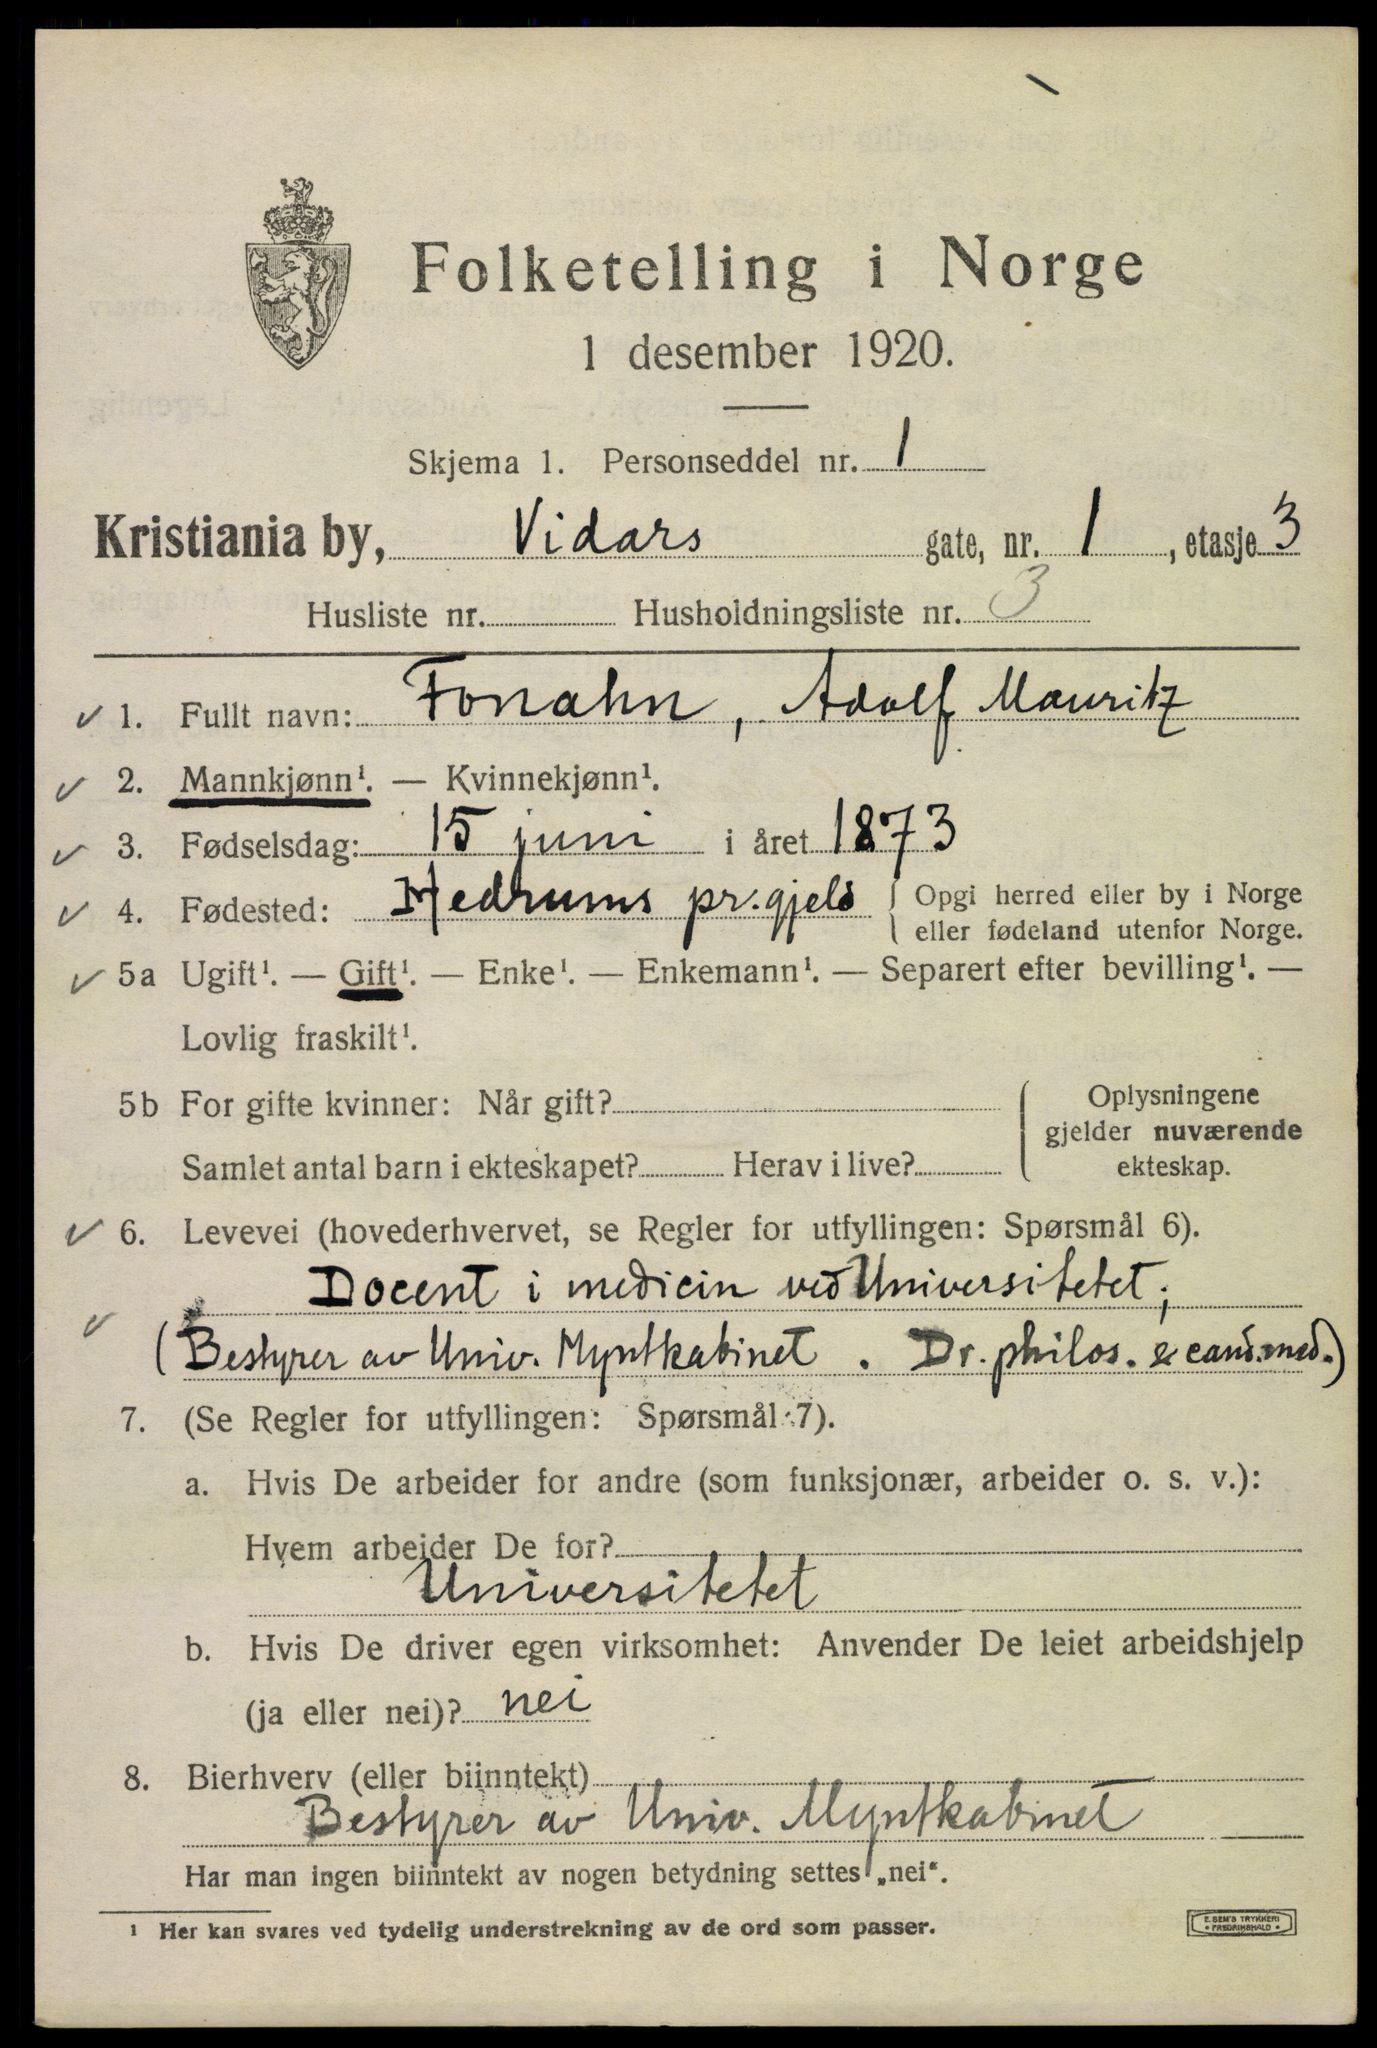 Folketelling i Norge
1 desember 1920.
Skjema 1. Personseddel nr. 1
Kristiania by, Vidars gate, nr. 1, etasje 3
Husliste nr. Husholdningsliste nr. 3
1. Fullt navn: Fonahn, Adolf Mauritz
2. Mannkjønn¹. — Kvinnekjønn¹.
3. Fødselsdag: 15 juni i året 1873
4. Fødested: Hedrums pr.gjeld { Opgi herred eller by i Norge
eller fødeland utenfor Norge.
5a Ugift¹. — Gift¹. — Enke¹. — Enkemann¹. — Separert efter bevilling¹. —
Lovlig fraskilt¹.
5b For gifte kvinner: Når gift?
Samlet antal barn i ekteskapet? Herav i live?
Oplysningene
gjelder nuværende
ekteskap.
6. Levevei (hovederhvervet, se Regler for utfyllingen: Spørsmål 6).
Docent i medicin ved Universitetet;
(Bestyrer av Univ. Myntkabinet. Dr. philos. & cand. med.)
7. (Se Regler for utfyllingen: Spørsmål 7).
a. Hvis De arbeider for andre (som funksjonær, arbeider o. s. v.):
Hvem arbeider De for?
Universitetet
b. Hvis De driver egen virksomhet: Anvender De leiet arbeidshjelp
(ja eller nei)? nei
8. Bierhverv (eller biinntekt)
Bestyrer av Univ. Myntkabinet
Har man ingen biinntekt av nogen betydning settes „nei“.
¹ Her kan svares ved tydelig understrekning av de ord som passer.
E. SEM'S TRYKKERI
• FREDRIKSHALD •